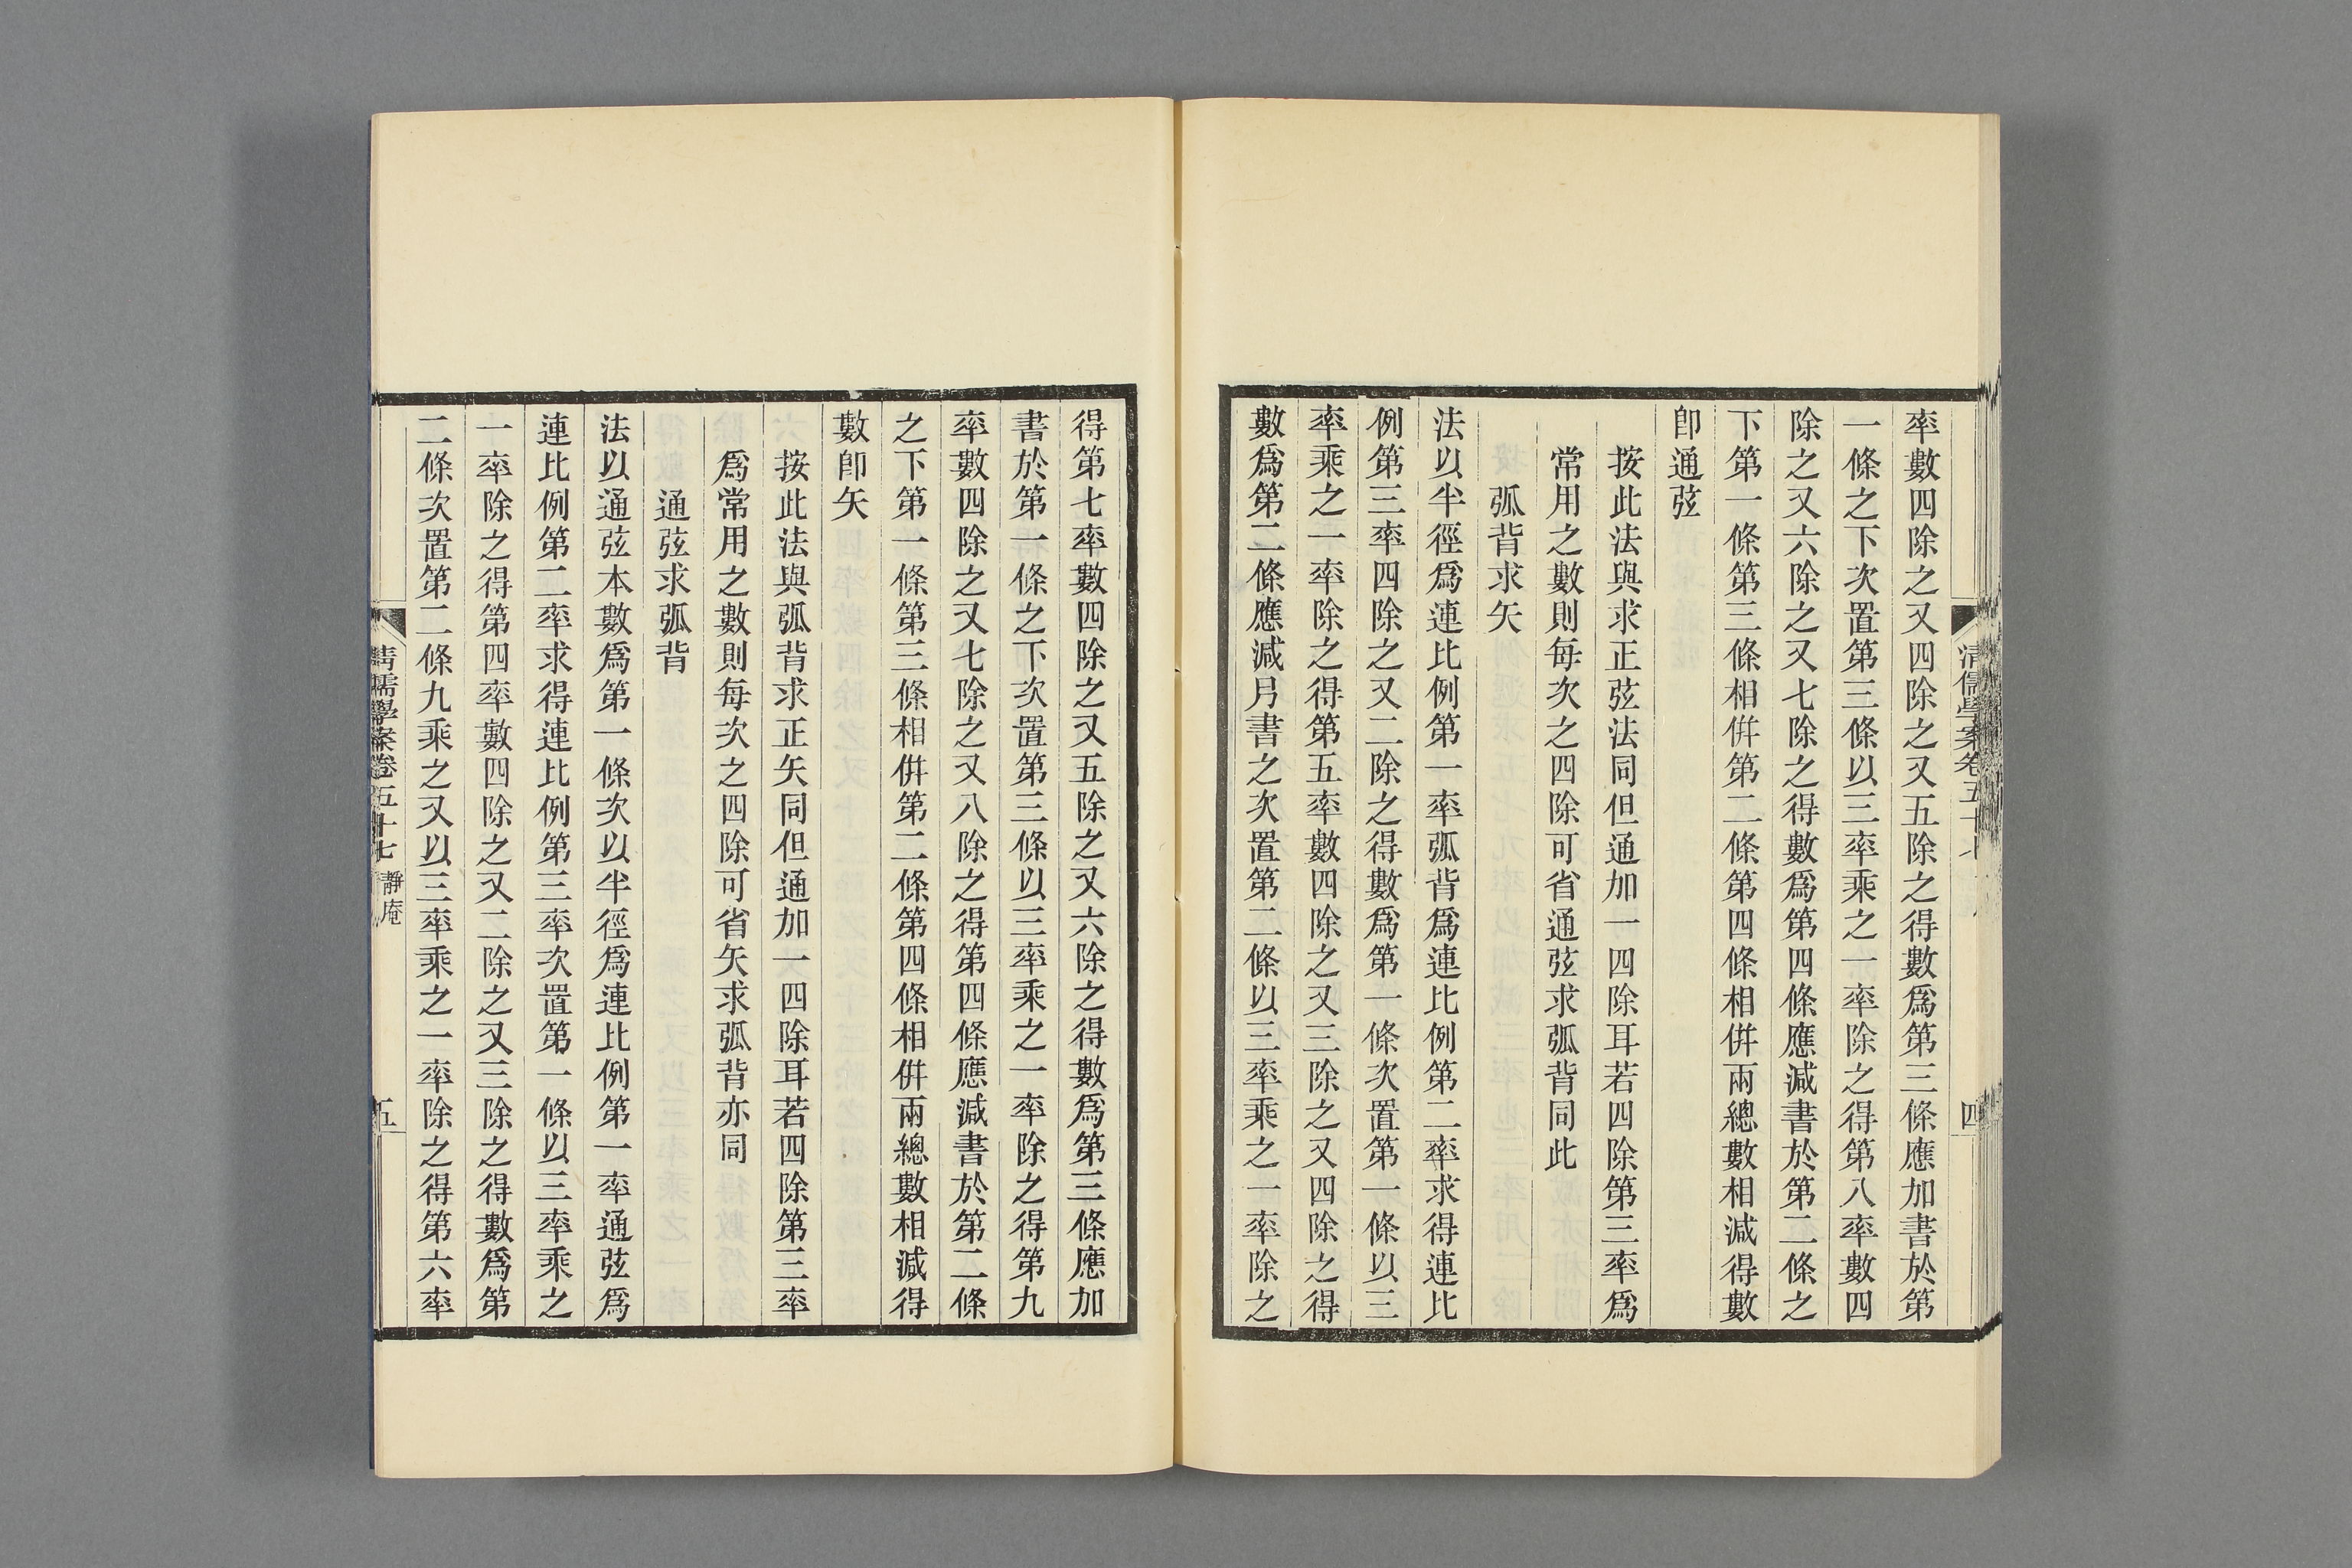 率數四除之又四除之又五除之得數爲第三條應加書於第
一條之下次置第三條以三率乘之一率除之得第八率數四
除之又六除之又七除之得數爲第四條應減書於第二條之
下第一條第三條相併第二條第四條相併兩總數相減得數
卽通弦
按此法與求正弦法同但通加一四除耳若四除第三率爲
常用之數則每次之四除可省通弦求弧背同此
弧背求矢
法以半徑爲連比例第一率弧背爲連比例第二率求得連比
例第三率四除之又二除之得數爲第一條次置第一條以三
率乘之一率除之得第五率數四除之又三除之又四除之得
數爲第二條應減另書之次置第二條以三率乘之一率除之
清儒學案卷五十七
四
得第七率數四除之又五除之又六除之得數爲第三條應加
書於第一條之下次置第三條以三率乘之一率除之得第九
率數四除之又七除之又八除之得第四條應減書於第二條
之下第一條第三條相併第二條第四條相併兩總數相減得
數卽矢
按此法與弧背求正矢同但通加一四除耳若四除第三率
爲常用之數則每次之四除可省矢求弧背亦同
通弦求弧背
法以通弦本數爲第一條次以半徑爲連比例第一率通弦爲
連比例第二率求得連比例第三率次置第一條以三率乘之
一率除之得第四率數四除之又二除之又三除之得數爲第
二條次置第二條九乘之又以三率乘之一率除之得第六率
清儒學案卷五十七 靜庵
五